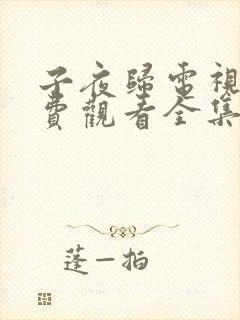 子夜歸電視
費觀看全集
蓬一拍